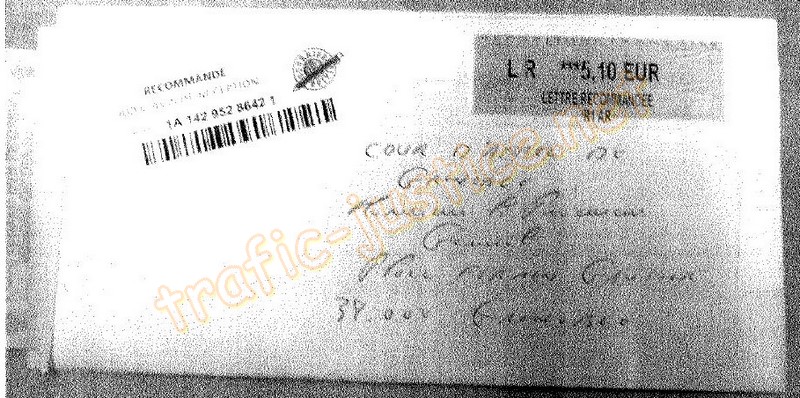 RECOMMANDÉ
AVEC AVIS DE RÉCEPTION
1A 142 952 8642 1
LR ***5.10 EUR
LETTRE RECOMMANDEE
R1 AR
COUR D'APPEL DE
Grenoble
Monsieur le Procureur
Général
Place Firmin Gautier
38.000 Grenoble
trafic-justice.net